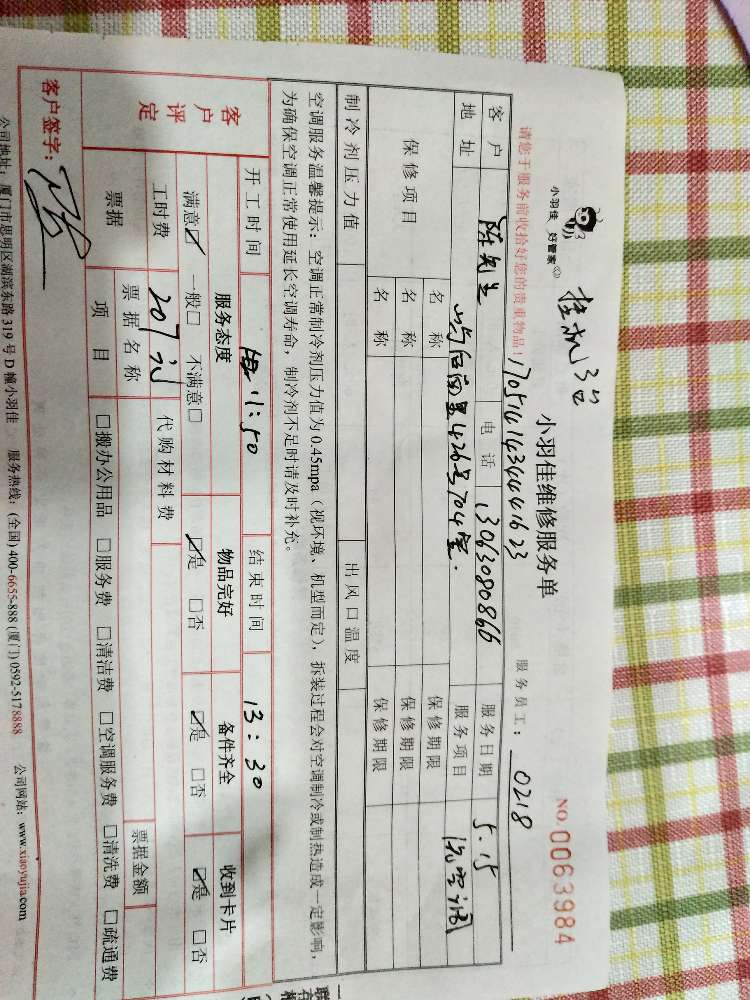 小羽佳 好管家
挂机3台
小羽佳维修服务单
NO.0063984
请您于服务前收拾好您的贵重物品！
服务员工：0218
客户 陈先生 电话 13063080866 服务日期 5.15
地址 426号704室. 服务项目 洗空调
保修项目 名称 保修期限
名称 保修期限
名称 保修期限
制冷剂压力值 出风口温度
空调服务温馨提示：空调正常制冷剂压力值为0.45mpa（视环境、机型而定），拆装过程会对空调制冷或制热造成一定影响，
为确保空调正常使用延长空调寿命，制冷剂不足时请及时补充。
客户评定
开工时间 11:50 结束时间 13:30
服务态度 物品完好 备件齐全 收到卡片
满意☑ 一般□ 不满意□ ☑是 □否 ☑是 □否 ☑是 □否
工时费 207元 代购材料费
票据 票据名称 票据金额
项目 □搬办公用品 □服务费 □清洁费 □空调服务费 □清洗费 □疏通费
客户签字：
公司地址：厦门市思明区湖滨东路319号D幢小羽佳 服务热线：(全国)400-6655-888 (厦门)0592-5178888 公司网站：www.xiaoyujia.com